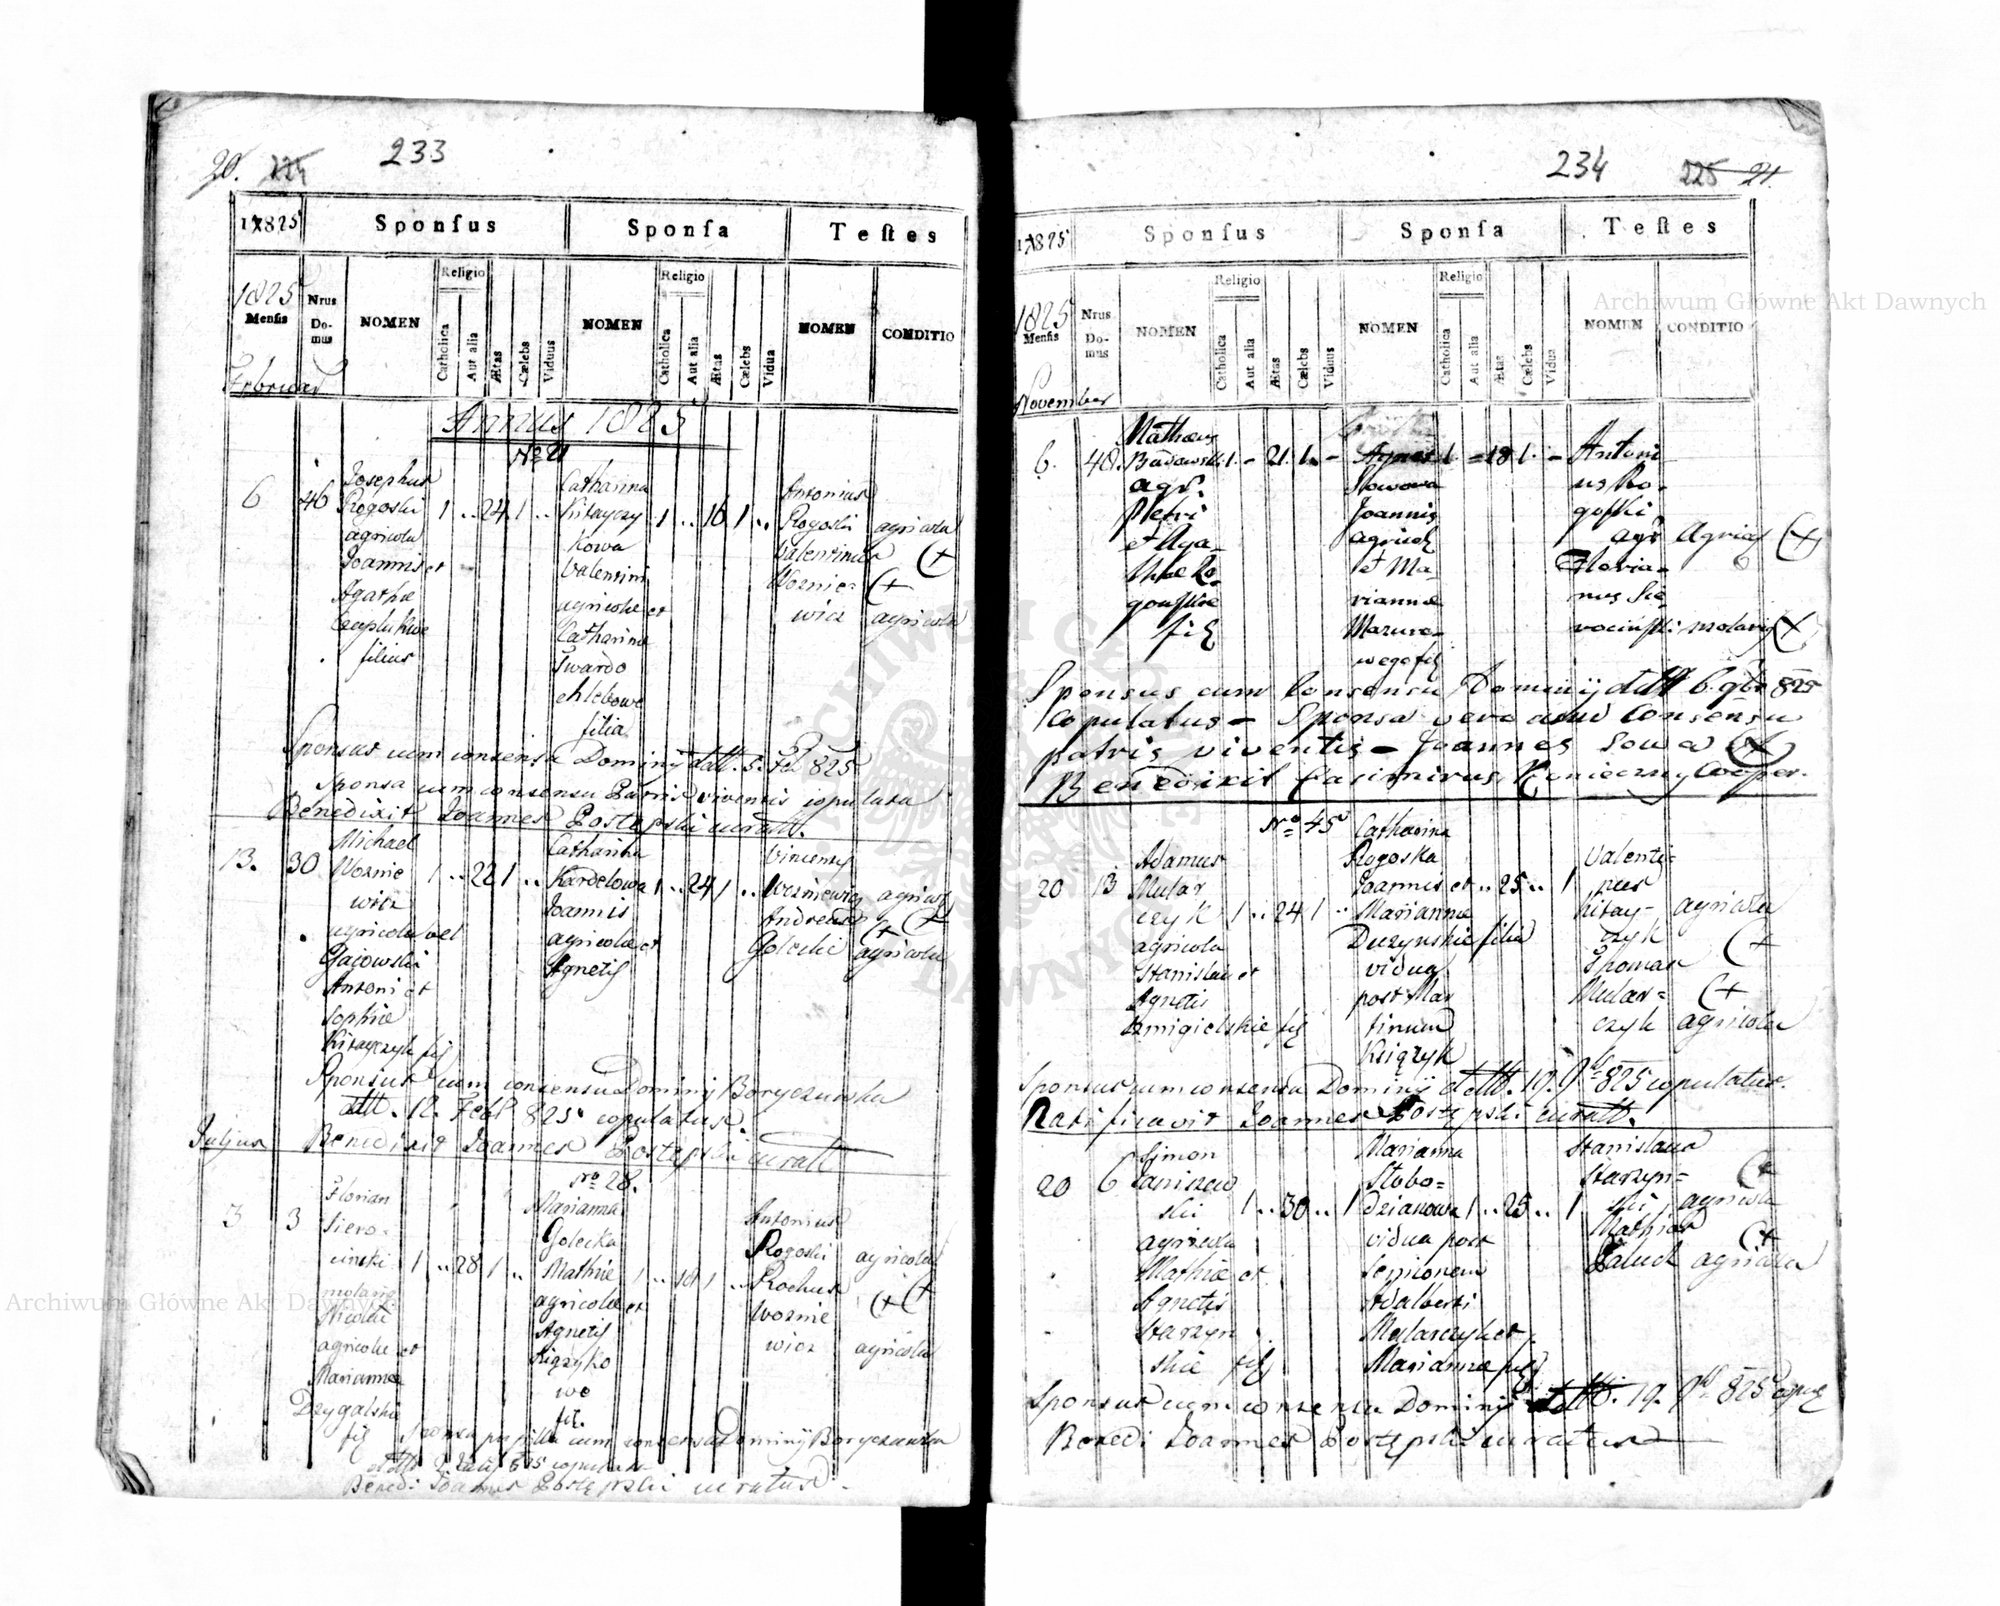 20. 224 233
17825 Sponſus Sponſa Teſtes
1825 Menſis Nrus Do- mus NOMEN Religio Catholica Aut alia Ætas Cælebs Viduus NOMEN Religio Catholica Aut alia Ætas Cælebs Vidua NOMEN CONDITIO
Februar
Annus 1825
No 21
6 46 Josephus Rogoski agricola Joannis et Agathæ filius
1 .. 24 1 ..
Catharina Kitayczy kowa Valentini agricolæ et Catharinæ Twardo chlebowe filia
1 .. 16 1 ..
Antonius Rogoski agricola
Valentinus Woznie- wicz agricola
Sponsus cum consensu Dominij ddtt. 5. Feb 825
Sponsa cum consensu Patris viventis copulata
Benedixit Joannes Postępski curatt.
13. 30 Michael Woznie wicz agricola vel Gajowski Antoni et Sophiæ Kitayczyk fil
1 .. 22 1 ..
Catharina Kardelowa Joannis agricolæ et Agnetis
1 .. 24 1 ..
Vincenty Wozniewicz agricola
Andreas Golecki agricola
Sponsus cum consensu Dominij Boryczowska
ddtt. 12. Feb 825 copulatus.
Benedixit Joannes Postępski curatt
Julius
No 28.
3 3 Florian Siero- cinski molang Nicolai agricolæ et Mariannæ Drygalskie fil
1 .. 28 1 ..
Marianna Golecka Mathiæ agricolæ et Agnetis Xiązyko we fil.
1 .. 18 1 ..
Antonius Rogoski agricola
Rochus Woznie wicz agricola
Sponsa pupilla cum consensu Dominij Boryczowska
ddtt 2 Julij 825 copulata
Benedi Joannes Postępski curatus
234 225 21.
17825 Sponſus Sponſa Teſtes
1825 Menſis Nrus Do- mus NOMEN Religio Catholica Aut alia Ætas Cælebs Viduus NOMEN Religio Catholica Aut alia Ætas Cælebs Vidua NOMEN CONDITIO
November
6. 48. Mathæus Badowski agr. Petri et Aga- thæ Ro- gouskie fil
1. - 21. 1. -
Agnes Slowowa Joannis agricol et Ma- riannæ Mazure- wego fil
1. - 18 1. -
Antoni- us Ro- goski agr Agric
Floria- nus Sie- rociński molaris
Sponsus cum Consensu Dominij ddtt 6. 9br 825
Copulatus - Sponsa vero cum Consensu
patris viventis - Joannes Sowa
Benedixit Casimirus Konieczny Cooper.
No 45
20 13 Adamus Mular czyk agricola Stanislai et Agnetis Szmigielskie fil
1 .. 24 1 ..
Catharina Rogoska Joannis et Mariannæ Duczynskie filia vidua post Mar tinum Księzyk
.. 25 .. 1
Valenti- nus Kitay- czyk agricola
Thomas Mular- czyk agricola
Sponsus cum consensu Dominij ddtt. 19. 9br 825 copulatus.
Ratificavit Joannes Postępski curatt.
20 6 Simon Staniszew ski agricola Mathiæ et Agnetis Starzyn skie fil
1 .. 30 .. 1
Marianna Slobo- dzianowa vidua post Scipionem Adalberti Mularczyk et Mariannæ fil
1 .. 25 .. 1
Stanislaus Starzyn- ski agricola
Mathias Paluch agricola
Sponsus cum consensu Dominij ddtt. 19. 9br 825 copul
Benedi Joannes Postępski curatus
Archiwum Główne Akt Dawnych
Archiwum Główne Akt Dawnych
ARCHIWUM GŁÓWNE AKT DAWNYCH